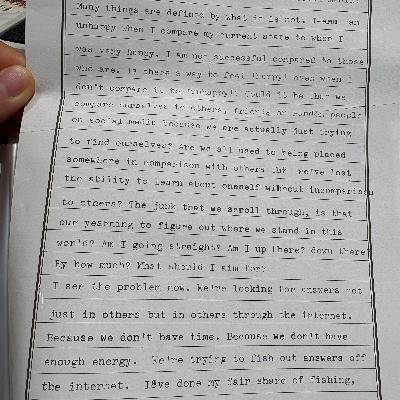 Many things are defined by what it is not. I am
unhappy when I compare my current state to when I
was very happy. I am not successful compared to those
who are. Is there a way to feel 'happy' even when I
don't compare it to 'unhappy'? Could it be that we
compare ourselves to others, friends or random people
on social media because we are actually just trying
to find ourselves? Are we all used to being placed
somewhere in comparison with others that we've lost
the ability to learn about oneself without incomparison
to others? The junk that we scroll through, is that
our yearning to figure out where we stand in this
world? Am I going straight? Am I up there? down there?
By how much? What should I aim for?
I see the problem now. We're looking for answers not
just in others but in others through the internet.
Because we don't have time. Because we don't have
enough energy. We're trying to fish out answers off
the internet. I've done my fair share of fishing,